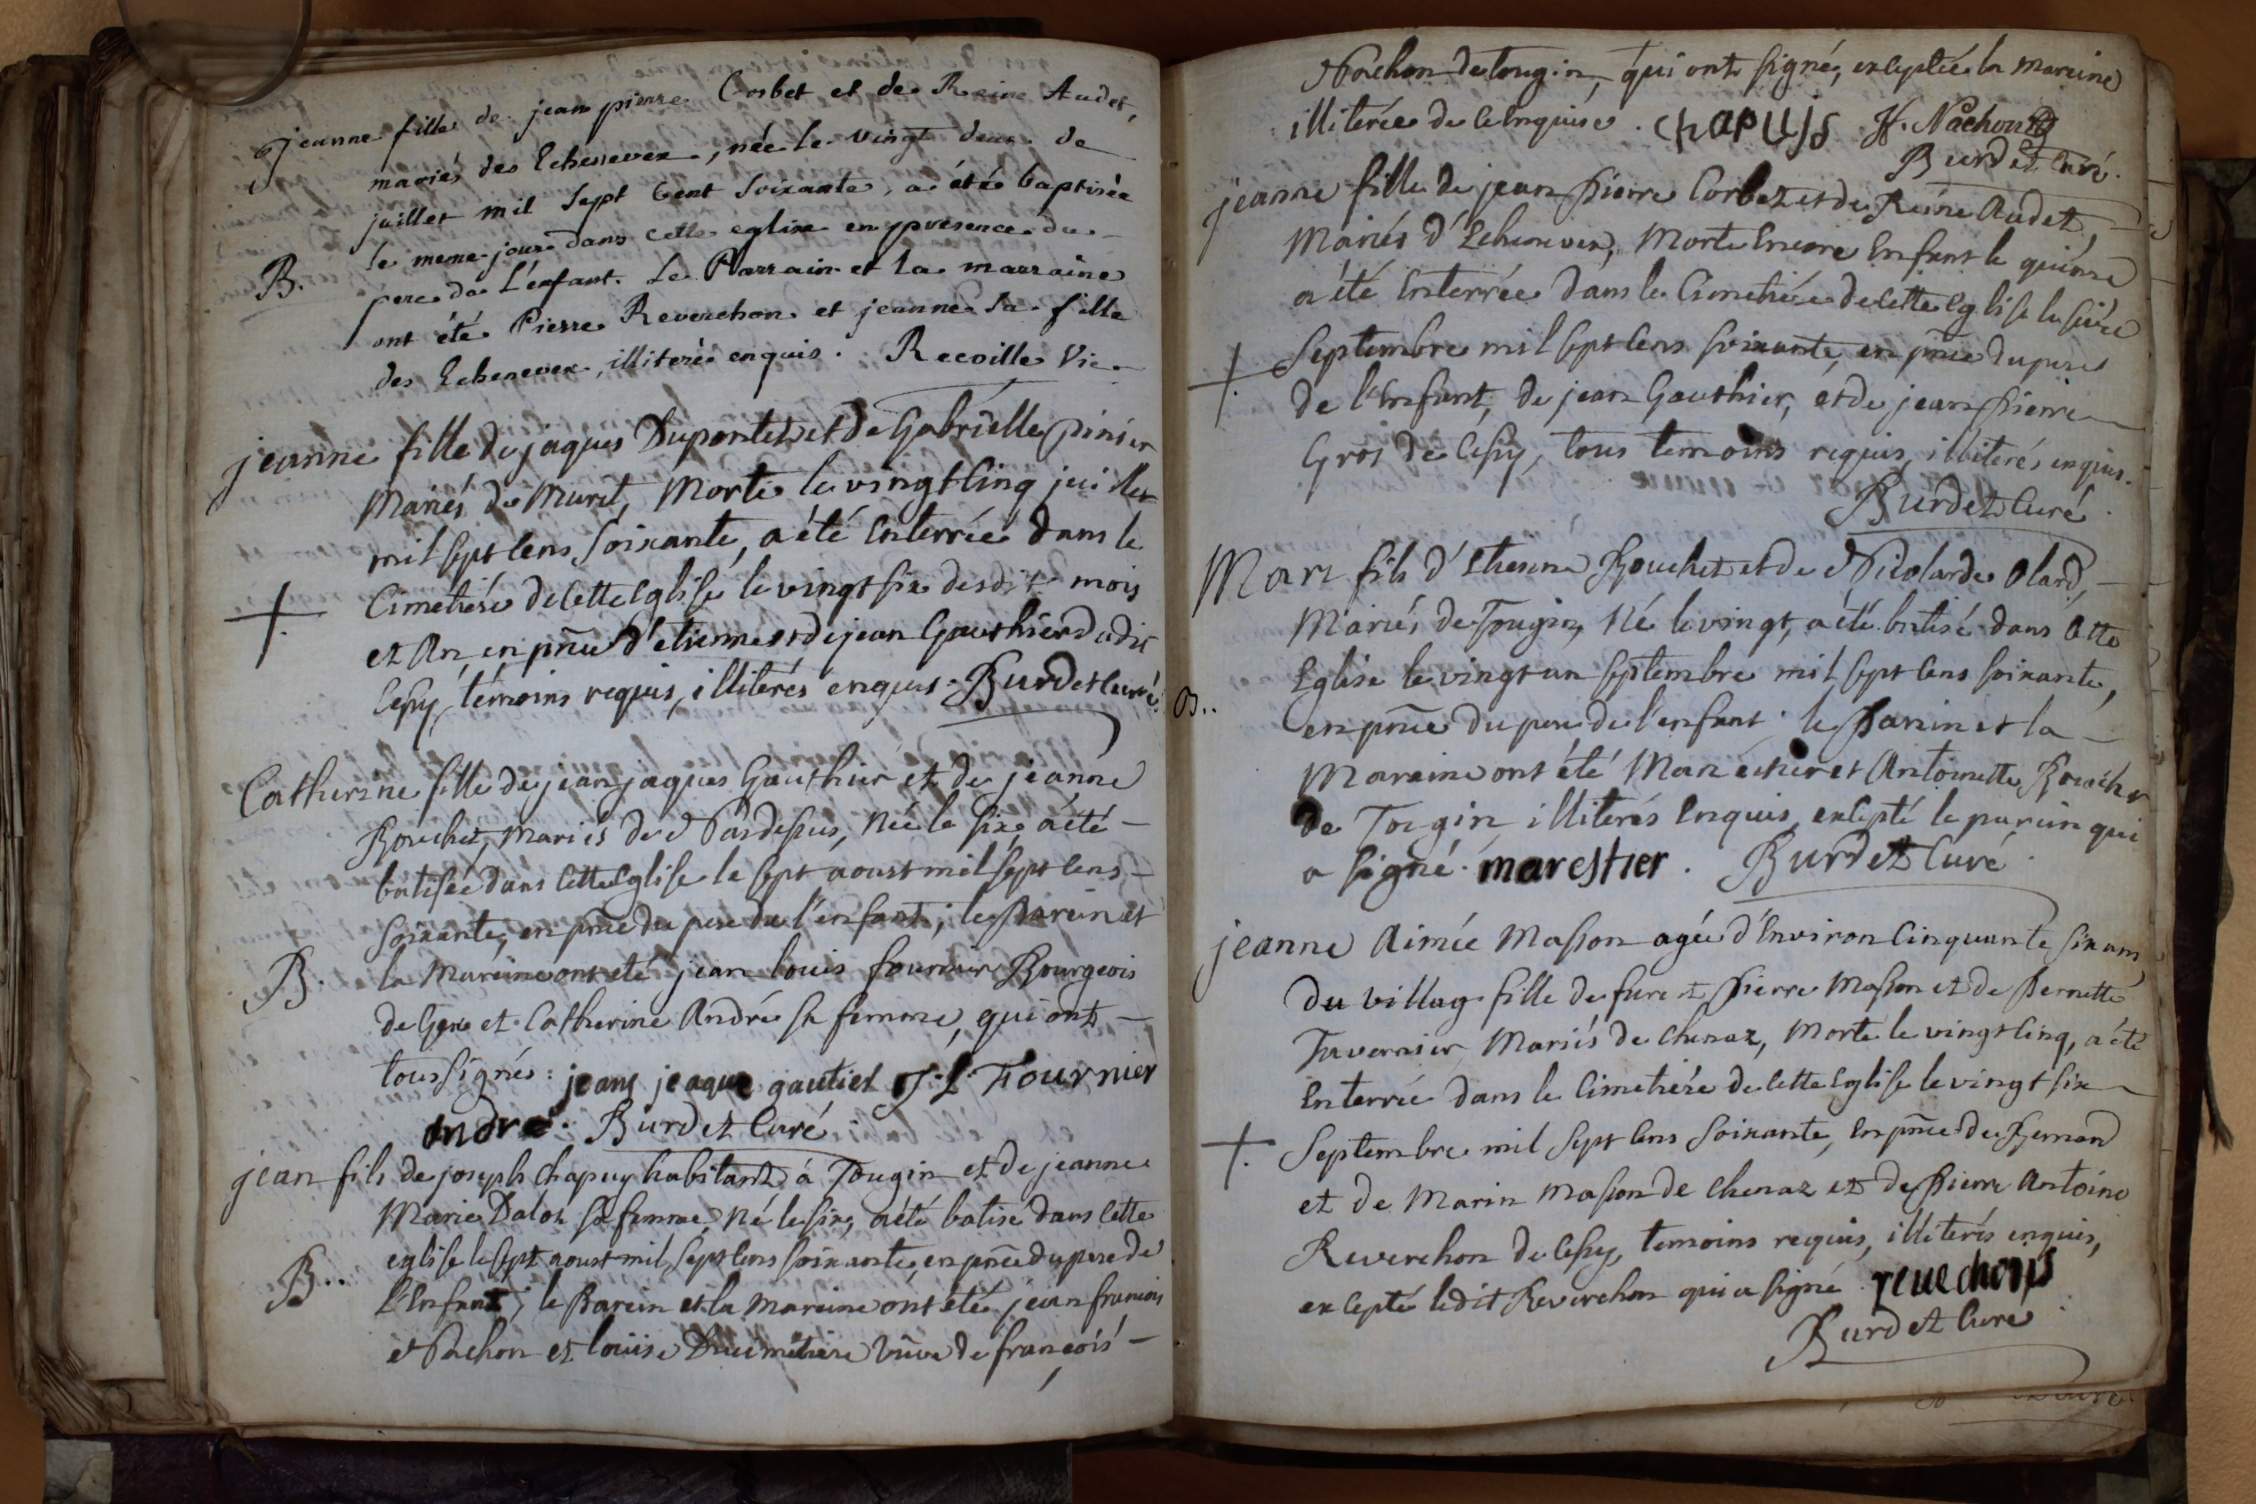 Jeanne fille de jean pierre Corbet et de Reine Audet,
mariés des Echenevex, née le vingt deux de
juillet mil sept Cent Soixante, a été baptisée
le meme jour dans cette eglise en presence du
B.
pere de L'enfant. Le Parrain et la marraine
ont été Pierre Reverchon et jeanne sa fille
des Echenevex, illiterée enquis. Recoille Vic
jeanne fille de jaques Dupontet et de Gabrielle pinier
Mariés de Muret, Morte le vingt cinq juillet
mil sept cens soixante, a été Enterrée dans le
Cimetière de cette Eglise le vingt six desdit mois
et An, en pñce d'etienne et de jean Gauthier dudit
Cessy, témoins requis, illiterés enquis. Burdet Curé.
Catherine fille de jean jaques Gauthier et de jeanne
Bouchet, Mariés de Pardessus, Née le six, a été
batisée dans cette Eglise le sept aoust mil sept cens
soixante, en pñce du pere de l'enfant; le Parein et
B.
la Mareine ont été jean louis fournier Bourgeois
de Gex et Catherine André sa femme, qui ont
tous signés: jean jeaque gautiet J. L. Fournier
andre. Burdet Curé.
jean fils de joseph chapuy habitant à Tougin et de jeanne
Marie Daloz sa femme, Né le six, a été batisé dans cette
eglise le sept aoust mil sept cens soixante, en pñce du pere de
B..
l'Enfant; le Parein et la Mareine ont été jean francois
Nachon et louise Ducimetiere vûve de françois
Nachon de Tougin, qui ont signé, exceptée la mareine
illiterée de ce enquise. chapuis H. Nachon
Burdet Curé.
jeanne fille de jean Pierre Corbet et de Reine Audet,
Mariés d'Echenevex, Morte Encore Enfant le quinze
a été Enterrée dans le Cimetière de cette Eglise le seize
Septembre mil sept cens soixante, en pñce du pere
de l'Enfant, de jean Gauthier, et de jean Pierre
Gros de Cessy, tous temoins requis, illiterés enquis.
Burdet Curé.
Marc fils d'Etienne Bouchet et de Nicolarde Olard,
Mariés de Tougin, Né le vingt, a été batisé dans Cette
Eglise le vingt un septembre mil sept cens soixante,
B..
en pñce du pere de l'enfant. le Parin et la
Mareine ont été Marc etier et Antoinette Bouchet
de Tougin illiterés Enquis, excepté le parein qui
a signé. marestier. Burdet Curé.
jeanne Aimée Masson agée d'Environ Cinquante six ans
du village fille de furent Pierre Masson et de Pernette
Tavernier, Mariés de Chenaz, Morte le vingt cinq, a été
Enterrée dans le Cimetière de cette Eglise le vingt six
Septembre mil sept cens soixante, En pñce de Bernard
et de Marin Masson de Chenaz et de Pierre Antoine
Reverchon de Cessy, temoins requis, illiterés enquis,
excepté ledit Reverchon qui a signé reuechons
Burdet Curé